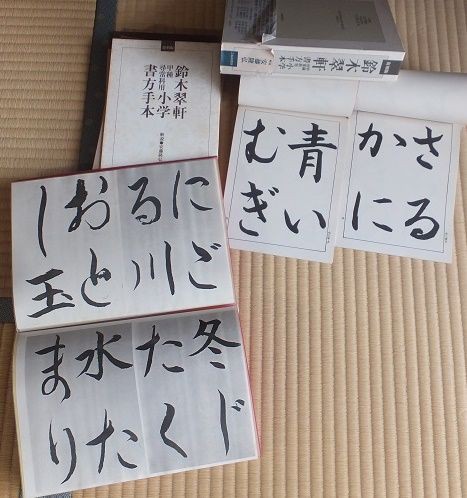 鈴木翠軒
甲種
尋常科用
小学
書方手本
鈴木翠軒
小学
書方手本
さる
かに
青い
むぎ
にご
る川
おと
し玉
冬じ
たく
水た
まり